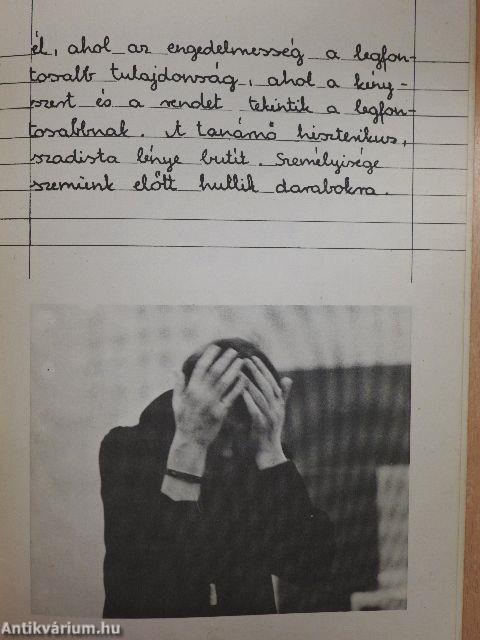 él, ahol az engedelmesség a legfon-
tosabb tulajdonság, ahol a kény-
szert és a rendet tekintik a legfon-
tosabbnak. A tanárnő hisztérikus,
szadista lénye butít. Személyisége
szemünk előtt hullik darabokra.
Antikvárium.hu